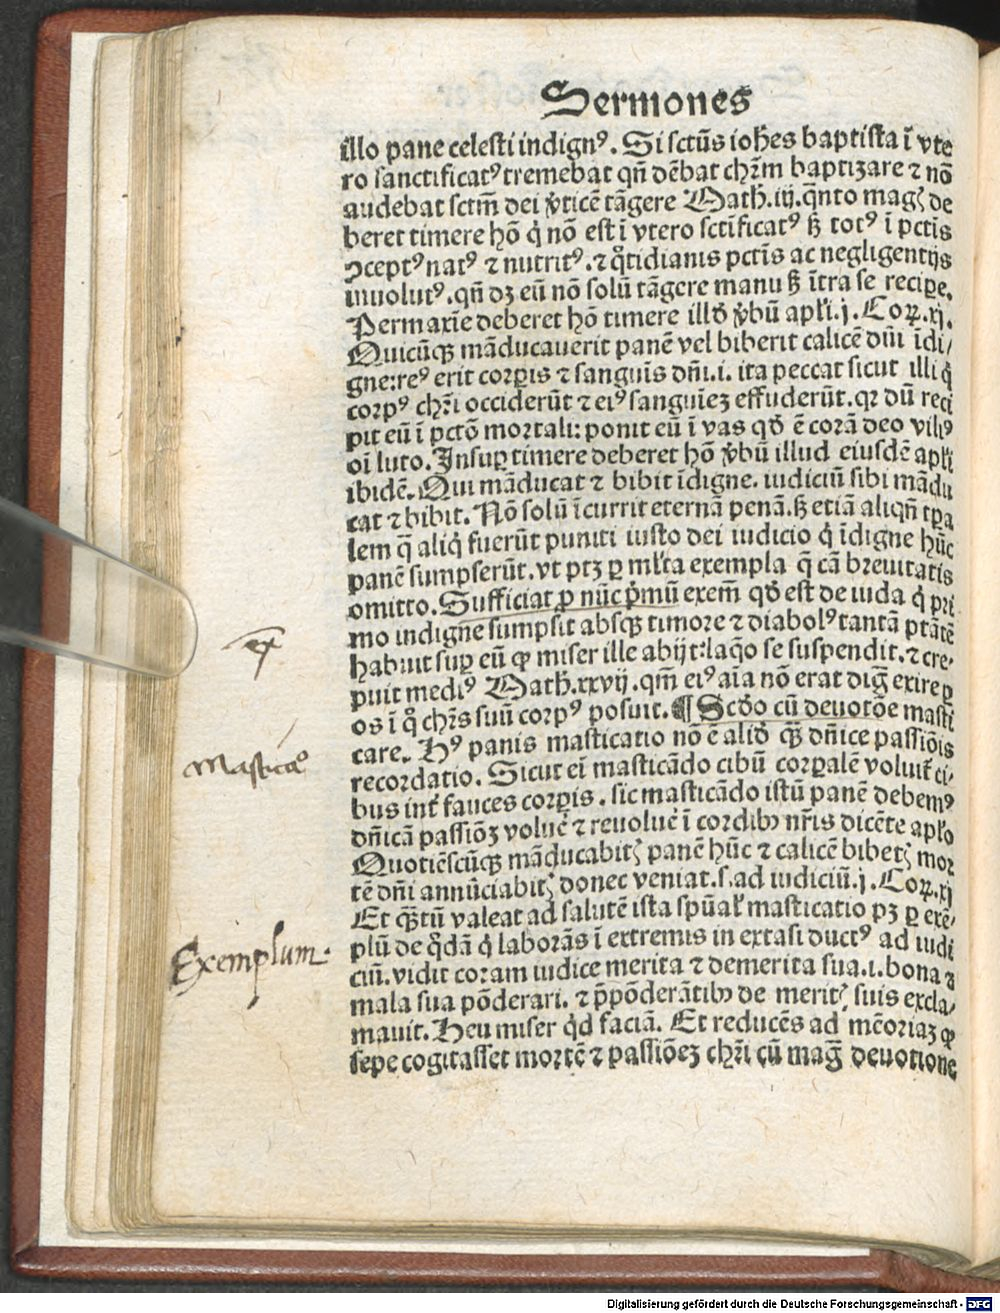 Sermones
illo pane celesti indignꝰ. Si sctūs ioh̄es baptista ī vte
ro sanctificatꝰ tremebat qn̄ dēbat chr̄m baptizare ⁊ nō
audebat sctm̄ dei v̓ticē tāgere Math̄. iij. q̄nto magꝭ de
beret timere hō q̓ nō est ī vtero sctīficatꝰ ß totꝰ ī pctīs
ꝯceptꝰ natꝰ ⁊ nutritꝰ. ⁊ q̊tidianis pctīs ac negligentijs
inuolutꝰ. qn̄ dꝫ eū nō solū tāgere manu ß ītra se recipe.
Permaxīe deberet hō timere illḋ v̓bū apl̓i. j. Coꝝ. xj.
Quicūqꝫ māducauerit panē vel biberit calicē dn̄i īdi/
gne: reꝰ erit corꝑis ⁊ sanguīs dn̄i. i. ita peccat sicut illi q̓
corpꝰ chr̄i occiderūt ⁊ eiꝰ sanguīeꝫ effuderūt. qꝛ dū reci
pit eū ī pctō mortali: ponit eū ī vas qḋ ē corā deo vilꝰ
oī luto. Insuꝑ timere deberet hō v̓bū illud eiusdē apl̓i
ibidē. Qui māducat ⁊ bibit īdigne. iudiciū sibi mādu
cat ⁊ bibit. Nō solū īcurrit eternā penā. ß etiā aliqn̄ tꝑa
lem q̄ aliq̓ fuerūt puniti iusto dei iudicio q̓ īdigne hūc
panē sumpserūt. vt ptꝫ ꝑ ml̓ta exempla q̄ cā breuitatis
omitto. Sufficiat ꝓ nūc p̓mū exem̄ qḋ est de iuda q̓ pri
mo indigne sumpsit absqꝫ timore ⁊ diabolꝰ tantā ptātē
habuit suꝑ eū ꝙ miser ille abijt: laq̊o se suspendit. ⁊ cre-
puit mediꝰ Math̄. xxvij. qm̄ eiꝰ aīa nō erat diḡ exire ꝑ
os ī q̊ chr̄s suū corpꝰ posuit. ¶ Scḋo cū deuotōe masti
care. Hꝰ panis masticatio nō ē aliḋ qꝫ dn̄ice passiōis
recordatio. Sicut eī masticādo cibū corꝑalē voluit̓ ci-
bus int̓ fauces corꝑis. sic masticādo istū panē debemꝰ
dn̄icā passiōꝫ voluē ⁊ reuoluē ī cordibꝰ nr̄is dicēte apl̓o
Quotiēscūqꝫ māducabitꝭ panē hūc ⁊ calicē bibetꝭ mor
tē dn̄i annūciabitꝭ donec veniat. s. ad iudiciū. j. Coꝝ. xj
Et qꝫtū valeat ad salutē ista spūal̓ masticatio pꝫ ꝑ exē-
plū de q̊dā q̓ laborās ī extremis in extasi ductꝰ ad iudi
ciū. vidit coram iudice merita ⁊ demerita sua. i. bona ⁊
mala sua pōderari. ⁊ p̄pōderātibꝰ de meritꝭ suis excla-
mauit. Heu miser q̓d faciā. Et reducēs ad mēoriaꝫ ꝙ
sepe cogitasset mortē ⁊ passiōeꝫ chr̄i cū maḡ deuotione
ex
Masticaō
Exemplum.
Digitalisierung gefördert durch die Deutsche Forschungsgemeinschaft - DFG